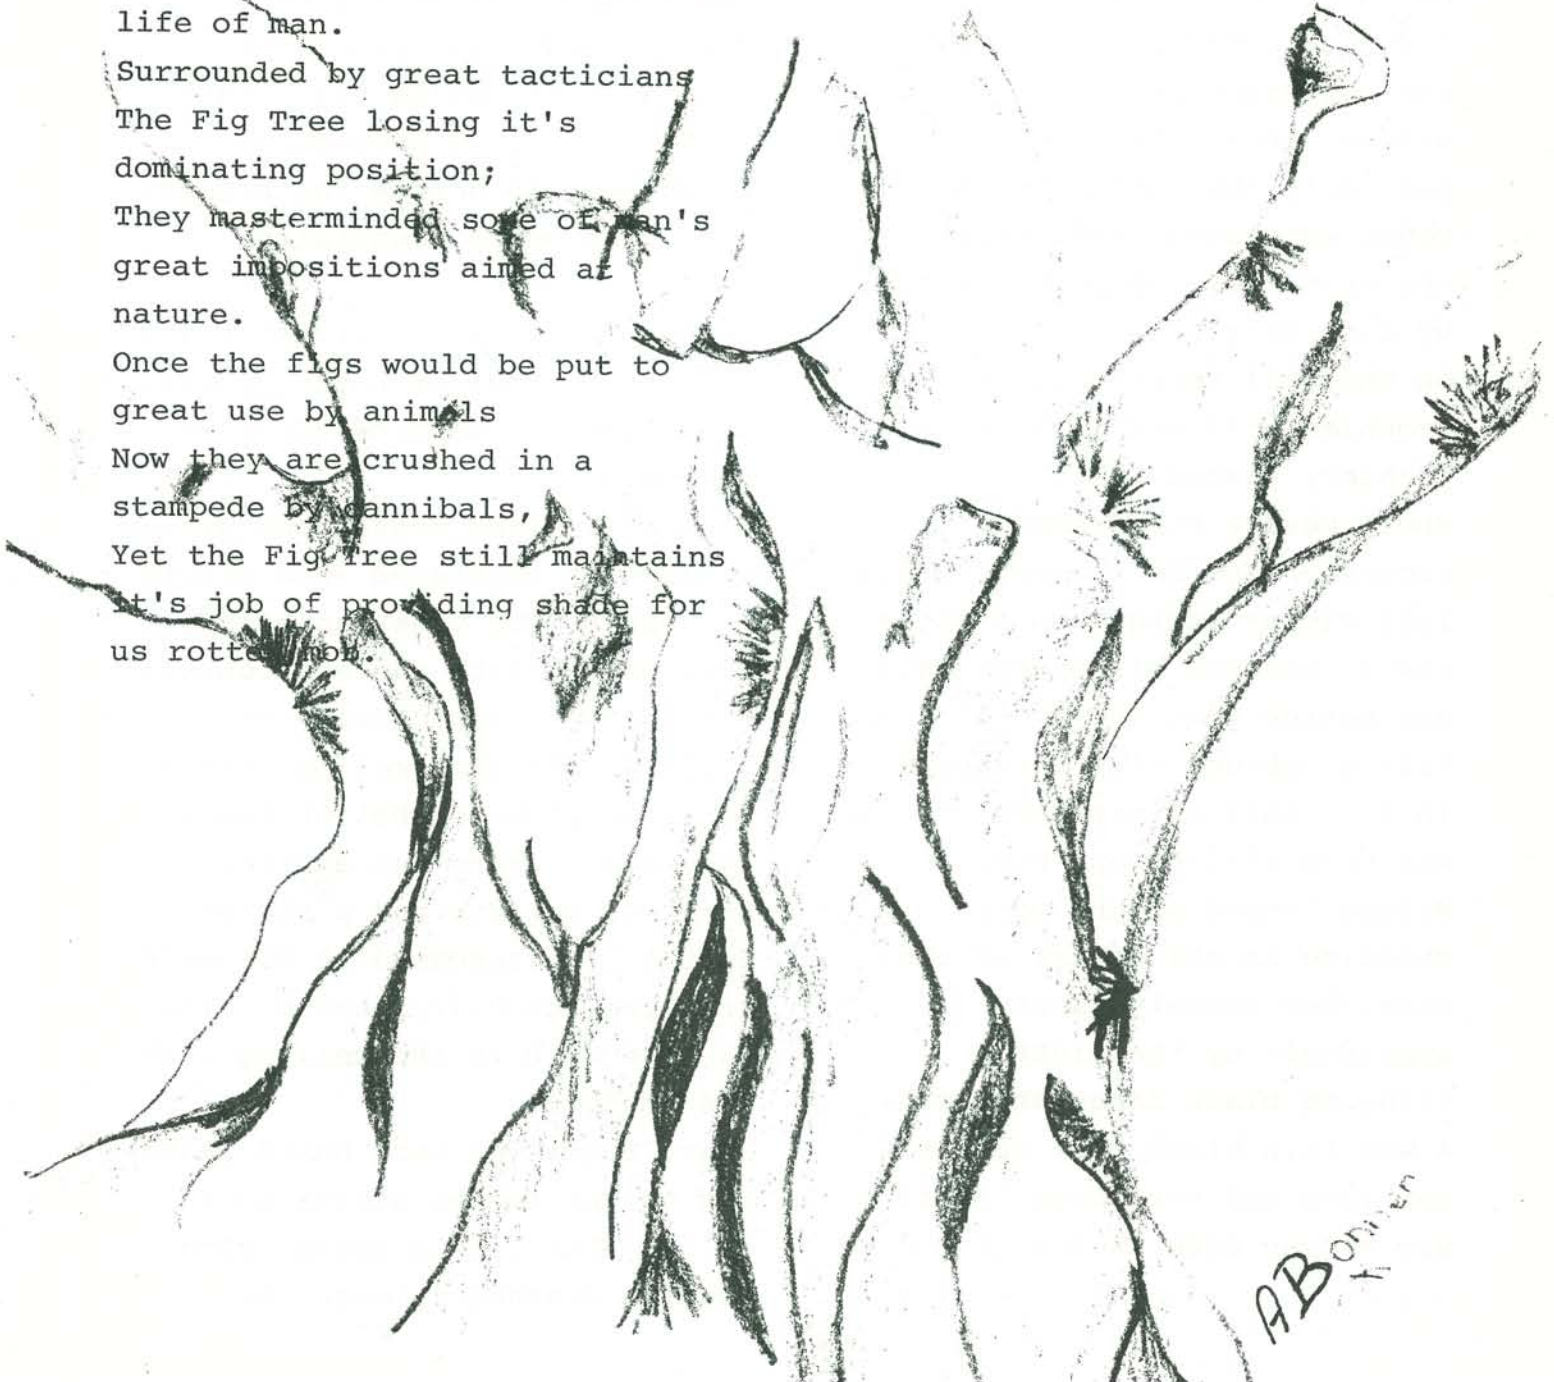 life of man.
Surrounded by great tacticians
The Fig Tree losing it's
dominating position;
They masterminded some of man's
great impositions aimed at
nature.
Once the figs would be put to
great use by animals
Now they are crushed in a
stampede by cannibals,
Yet the Fig Tree still maintains
it's job of providing shade for
us rotten mob.